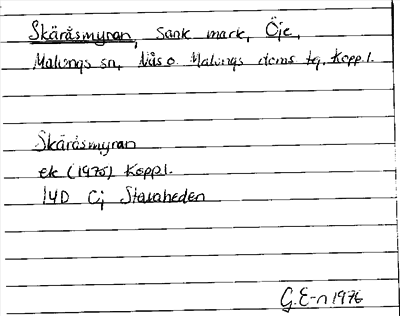 Skäråsmyran, Sank mark, Öje,
Malungs sn, Nås o. Malungs doms tg, Koppl.
Skäråsmyran
ek (1975) Koppl.
14D Cj Stavaheden
G.E-n 1976